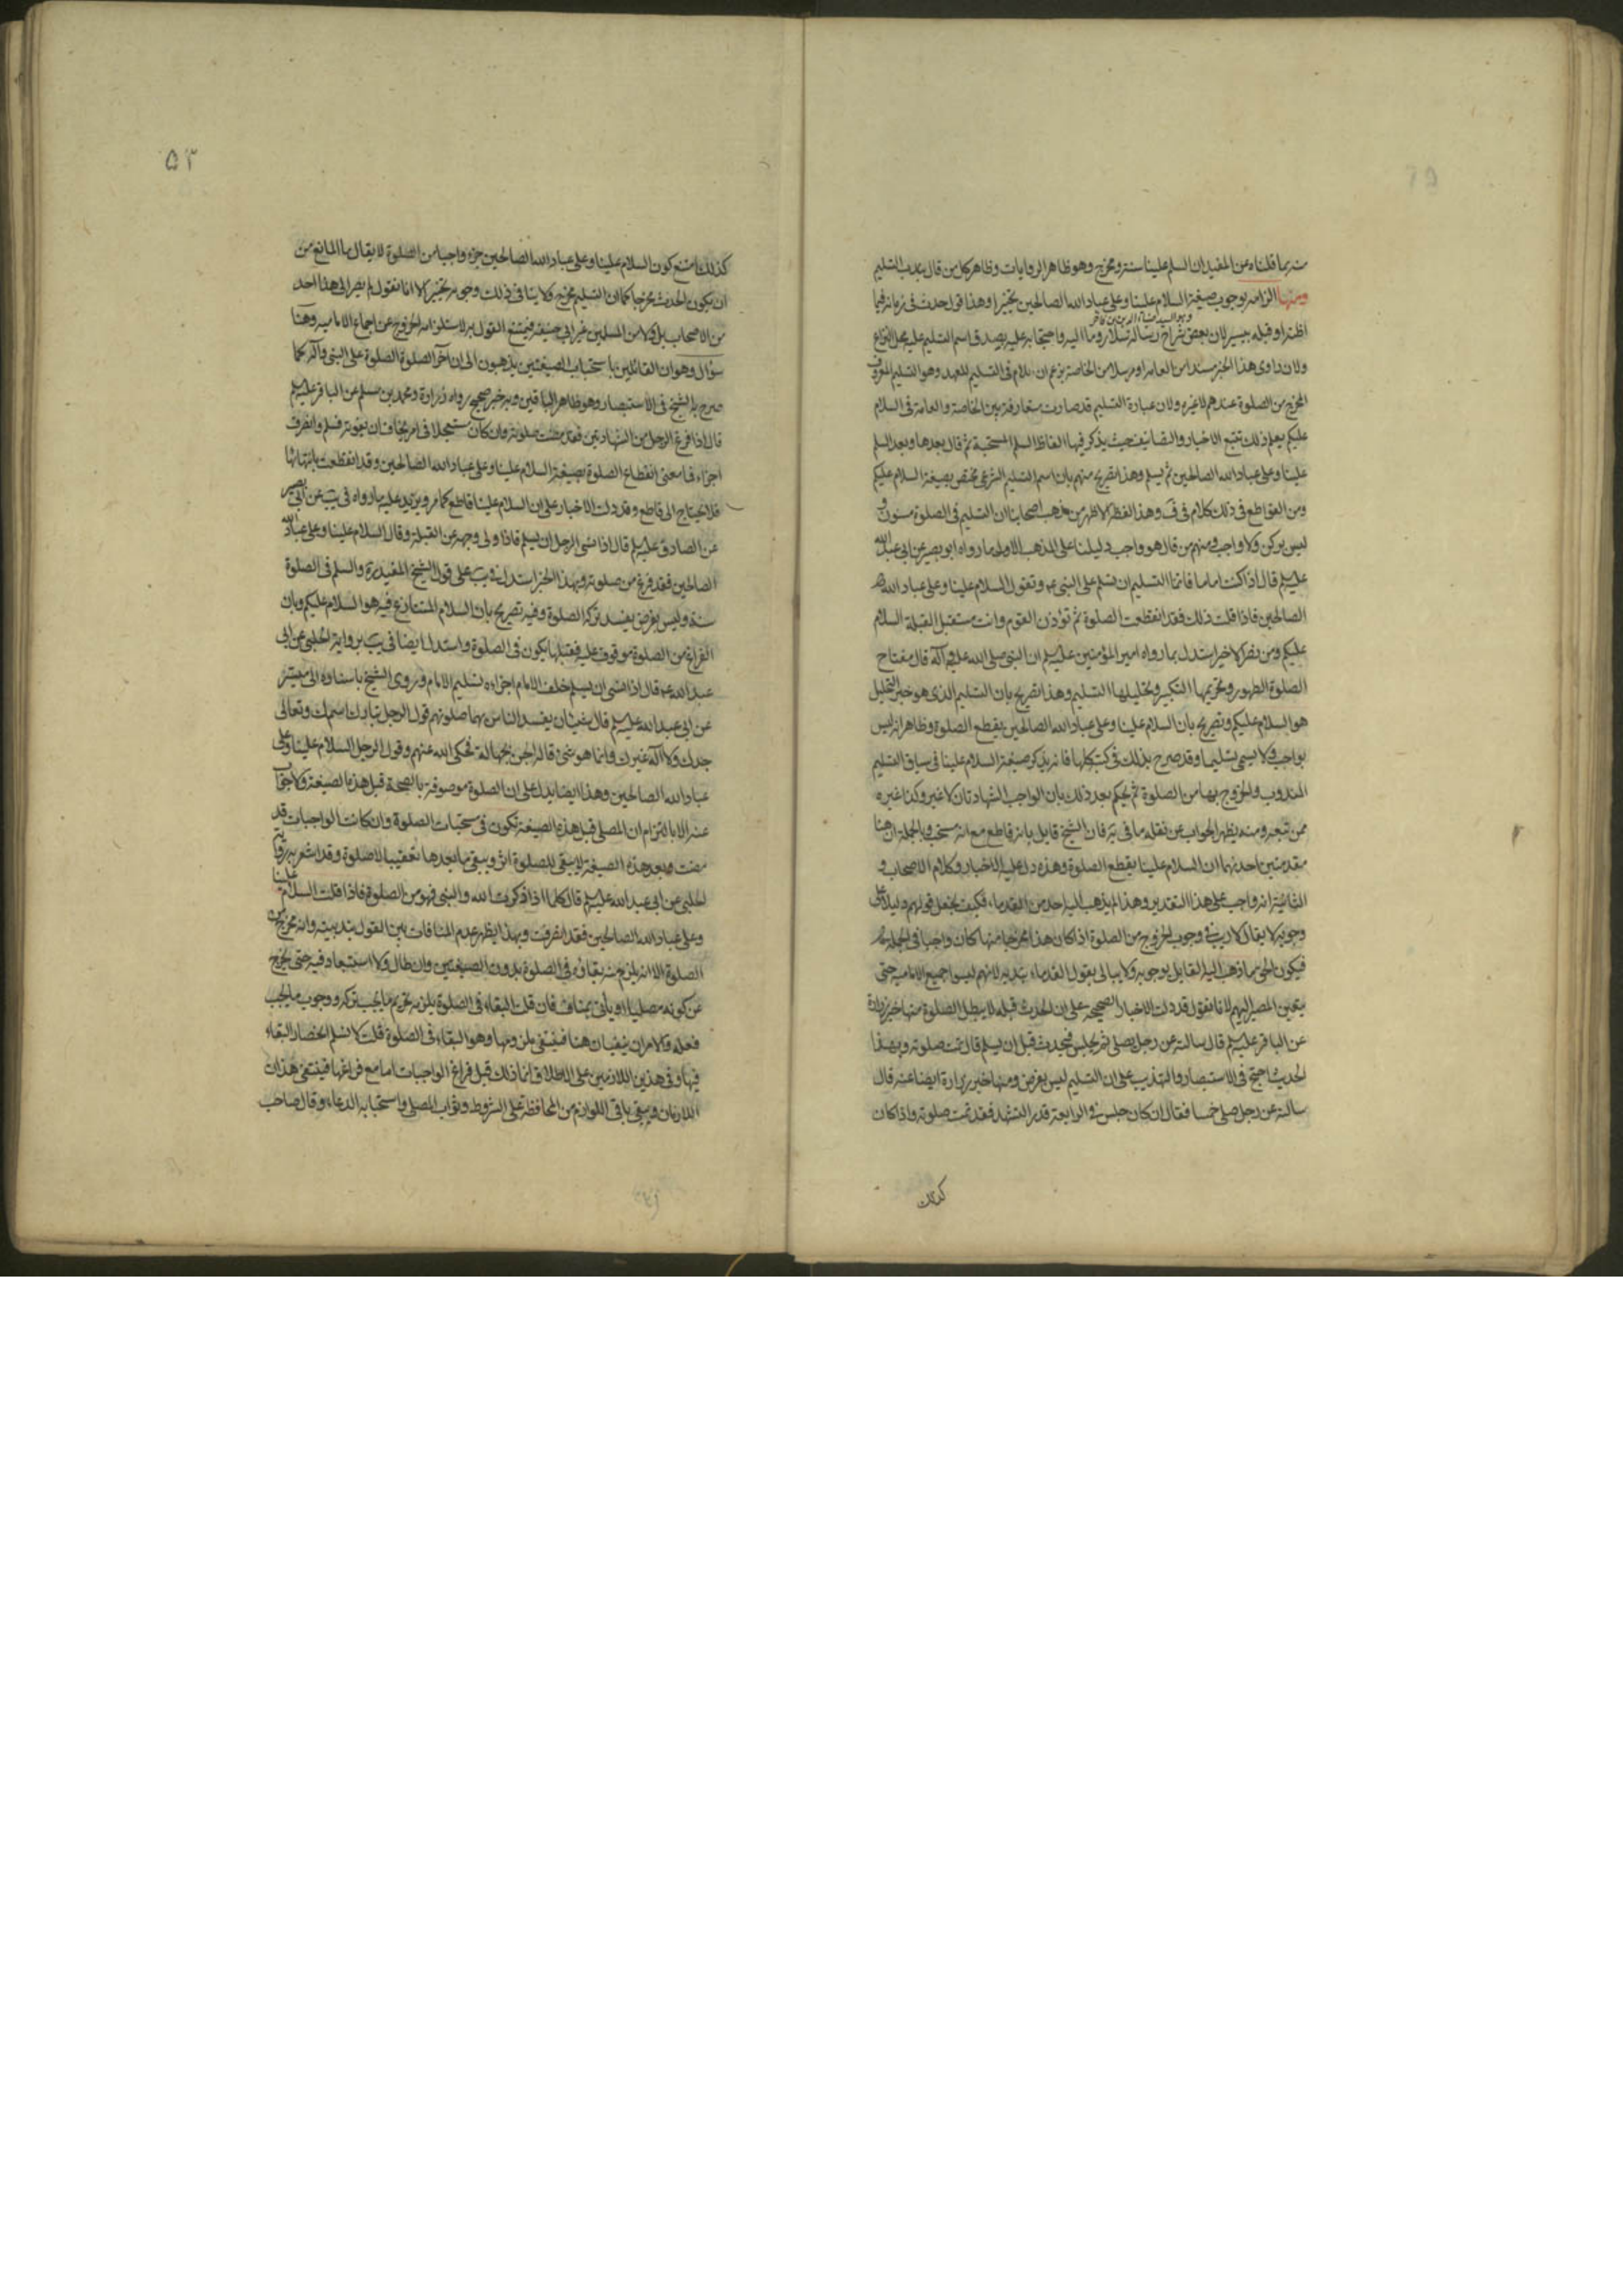 منه بما قلناه عن المفيد ان السلم علينا سنة ومخرج وهو ظاهر الروايات وظاهر كل من قال بندب التسليم
ومنها الزامه بوجوب صيغة السلام علينا وعلى عباد الله الصالحين تخييرا وهذا قول حدث في زمانه فيما
اظنه او قبله بيسير لان بعض شراح رسالة سلار وما اليه واحتجابه عليه بصدق اسم التسليم عليه محل النزاع
ولان راوى هذا الخبر مسندا من العامة او مرسلا من الخاصة يزعم ان اللام في التسليم للعهد وهو التسليم المعروف
المخرج من الصلوة عندهم لا غيره ولان عبارة التسليم قد صارت متعارفة بين الخاصة والعامة في السلام
عليكم يعلم ذلك تتبع الاخبار والتصانيف حيث يذكر فيها الفاظ السلم المستحبة ثم قال بعدها وبعد السلم
علينا وعلى عباد الله الصالحين ثم يسلم وهذا تصريح منهم بان اسم التسليم الشرعى مختص بصيغة السلام عليكم
ومن القواطع في ذلك كلام في ف وهذا لفظه الاظهر من مذهب اصحابنا ان التسليم في الصلوة مسنون و
ليس بركن ولا واجب ومنهم من قال هو واجب دليلنا على المذهب الاول ما رواه ابو بصير عن ابي عبد الله
عليه السلم قال اذا كنت اماما فانما التسليم ان تسلم على النبى ص وتقول السلام علينا وعلى عباد الله
الصالحين فاذا قلت ذلك فقد انقطعت الصلوة ثم تؤذن القوم وانت مستقبل القبلة السلام
عليكم ومن نصر الاخير استدل بما رواه امير المؤمنين عليه السلم ان النبى صلى الله عليه وآله قال مفتاح
الصلوة الطهور وتحريمها التكبير وتحليلها التسليم وهذا تصريح بان التسليم الذى هو خبر التحليل
هو السلام عليكم وتصريح بان السلام علينا وعلى عباد الله الصالحين يقطع الصلوة وظاهر انه ليس
بواجب ولا يسمى تسليما وقد صرح بذلك في كتبه كلها فانه يذكر صيغة السلام علينا في سياق التسليم
المندوب والخروج بها من الصلوة ثم يحكم بعد ذلك بان الواجب الشهادتان لا غير وكذا غيره
ممن تبعه ومنه يظهر الجواب عن نقله ما في يه فان الشيخ قايل بانه قاطع مع انه مستحب وبالجملة ان هنا
مقدمتين احدهما ان السلام علينا يقطع الصلوة وهذه دل عليه الاخبار وكلام الاصحاب و
الثانية انه واجب على هذا التقدير وهذا لم يذهب اليه احد من القدماء فكيف يجعل قولهم دليلا على
وجوبه لا يقال لا ريب في وجوب الخروج من الصلوة اذا كان هذا مخرجا منها كان واجبا في الجملة
فيكون الحق ما ذهب اليه القايل بوجوبه ولا يبالى بقول القدماء بندبه لانهم ليسوا جميع الامامية حتى
يتعين المصير اليهم لانا نقول قد دلت الاخبار الصحيحة على ان الحدث قبله لا يبطل الصلوة منها خبر زرارة
عن الباقر عليه السلم قال سالته عن رجل يصلى ثم يجلس فيحدث قبل ان يسلم قال تمت صلوته وبهذا
الحديث احتج في الاستبصار والتهذيب على ان التسليم ليس بفرض ومنها خبر زرارة ايضا عنه قال
سالته عن رجل صلى خمسا فقال ان كان جلس في الرابعة قدر التشهد فقد تمت صلوته واذا كان
كذلك
۵۳
كذلك امتنع كون السلام علينا وعلى عباد الله الصالحين جزء واجبا من الصلوة لا يقال ما المانع من
ان يكون الحدث مخرجا كما ان التسليم مخرج ولا ينافى ذلك وجوبه تخييرا لانا نقول لم يصر الى هذا احد
من الاصحاب بل ولا من المسلمين غير ابى حنيفة فيمتنع القول به لاستلزامه الخروج عن اجماع الامامية وهنا
سؤال وهو ان القائلين باستحباب الصيغتين يذهبون الى ان آخر الصلوة الصلوة على النبى وآله كما
صرح به الشيخ في الاستبصار وهو ظاهر الباقين وبه خبر صحيح رواه زرارة ومحمد بن مسلم عن الباقر عليه السلم
قال اذا فرغ الرجل من الشهادتين فقد مضت صلوته وان كان مستعجلا في امر يخاف ان يفوته فسلم وانصرف
اجزاه فما معنى انقطاع الصلوة بصيغة السلام علينا وعلى عباد الله الصالحين وقد انقطعت بانتهائها
فلا تحتاج الى قاطع وقد دلت الاخبار على ان السلام علينا قاطع كما مر ويزيد عليه ما رواه في يب عن ابى بصير
عن الصادق عليه السلم قال اذا نسى الرجل ان يسلم فاذا ولى وجهه عن القبلة وقال السلام علينا وعلى عباد الله
الصالحين فقد فرغ من صلوته وبهذا الخبر استدل في يب على قول الشيخ المفيد ره والسلم في الصلوة
سنة وليس بفرض يفسد بتركه الصلوة وفيه تصريح بان السلام المتنازع فيه هو السلام عليكم وبان
الفراغ من الصلوة موقوف عليه فقبلها يكون في الصلوة واستدل ايضا في يب برواية الحلبى عن ابى
عبد الله ع قال اذا نسى ان يسلم خلف الامام اجزاءه تسليم الامام وروى الشيخ باسناده الى ميسر
عن ابى عبد الله عليه السلم قال شيئان يفسد الناس بهما صلوتهم قول الرجل تبارك اسمك وتعالى
جدك ولا اله غيرك وانما هو شئ قاله الجن بجهالة فحكى الله عنهم وقول الرجل السلام علينا وعلى
عباد الله الصالحين وهذا ايضا يدل على ان الصلوة موصوفة بالصحة قبل هذه الصيغة ولا جواب
عنه الا بالتزام ان المصلى قبل هذه الصيغة تكون في مستحبات الصلوة وان كانت الواجبات قد
مضت وبعد هذه الصيغة لا يبقى للصلوة اثر ويبقى ما بعدها تعقيبا لا صلوة وقد اشعر به رواية
الحلبى عن ابى عبد الله عليه السلم قال كلما اذا ذكرت الله والنبى فهو من الصلوة فاذا قلت السلام علينا
وعلى عباد الله الصالحين فقد انصرفت وبهذا يظهر عدم المنافات بين القول بندبيته وانه مخرج من
الصلوة الا انه يلزم منه بقاؤه في الصلوة بدون الصيغتين وان طال ولا استبعاد فيه حتى يخرج
عن كونه مصليا او يأتى بمناف فان قلت البقاء في الصلوة يلزمه تحريم ما يجب تركه ووجوب ما يجب
فعله والامران منفيان هنا فينتفى ملزومها وهو البقاء في الصلوة قلت لا نسلم انحصار البقاء
فيها في هذين اللازمين على الاطلاق انما ذلك قبل فراغ الواجبات اما مع فراغها فينتفى هذان
اللازمان ويبقى باقى اللوازم من المحافظة على الشروط وثواب المصلى واستحبابه الدعاء وقال صاحب